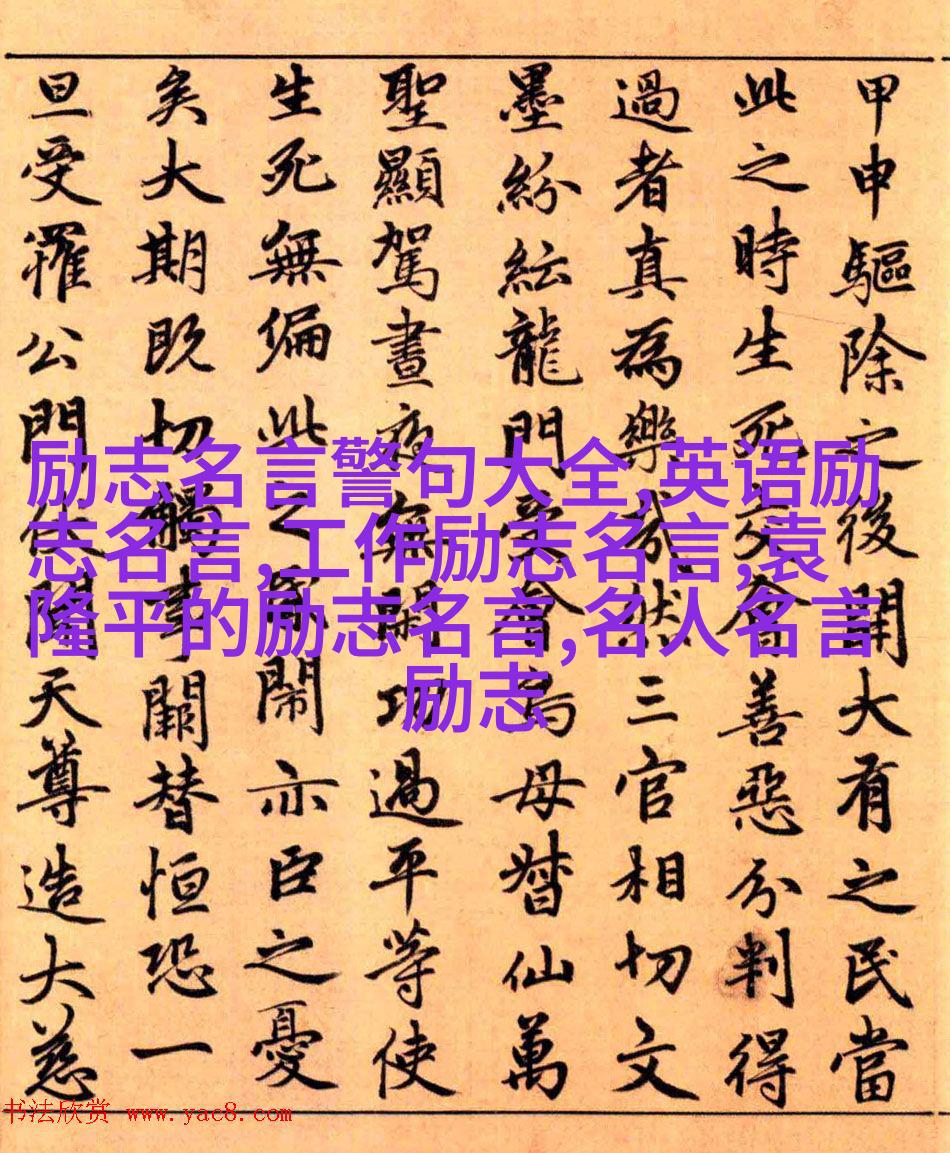 甲申驅除之後開大有之民當
此之時生死交會善惡分判得
過者真為樂哉然三官相切文
墨紛紜龍門受會鳥母督仙萬
聖顯駕晝夜無閑功過平等使
生死無偏此之鬧亦臣之憂
矣大期既切觸事闕替恒恐一
旦受罹公門伏聞天尊造大慈
励志名言警句大全,英语励
志名言,工作励志名言,袁
隆平的励志名言,名人名言
励志
书法欣赏 www.yac8.com